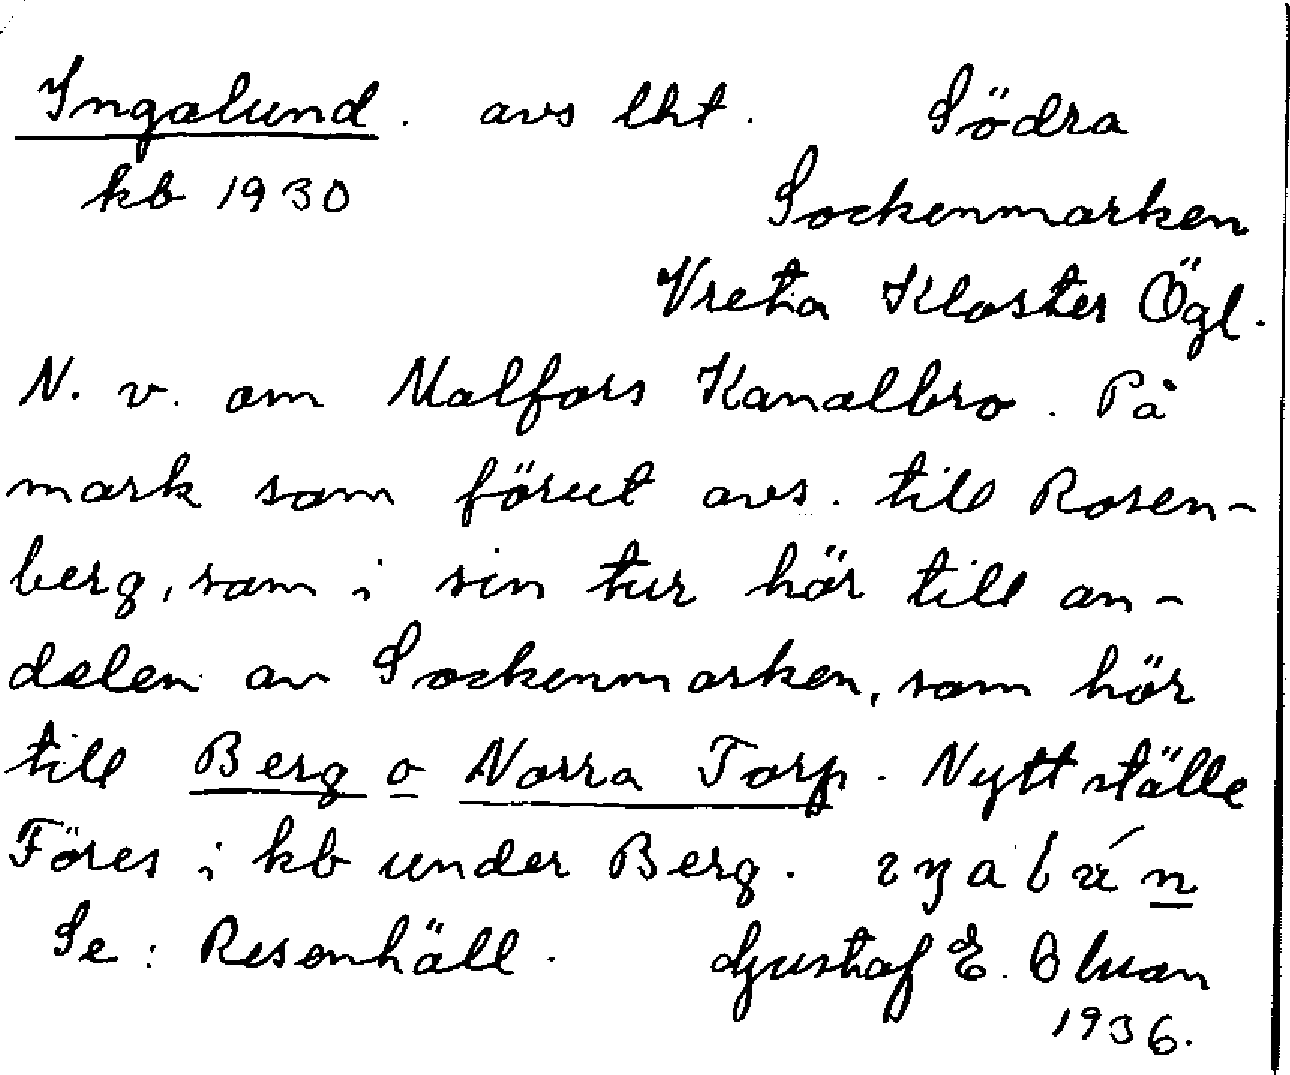 Ingalund. avs lht. Södra
kb 1930 Sockenmarken
Vreta Kloster Ögl.
N. v. om Malfors Kanalbro. På
mark som förut avs. till Rosen-
berg, som i sin tur hör till an-
delen av Sockenmarken, som hör
till Berg o Norra Torp. Nytt ställe
Föres i kb under Berg.
Se: Resenhäll. Gustaf E.
1936.